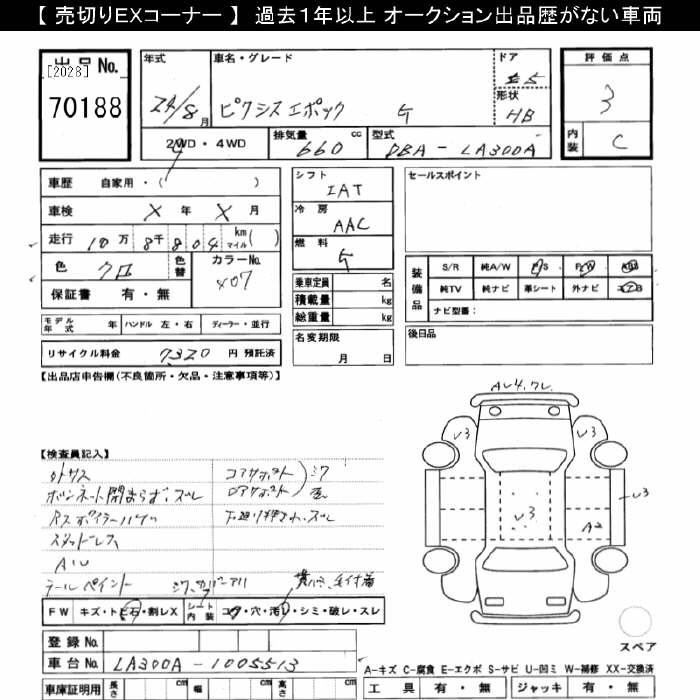 【 売切りEXコーナー 】 過去１年以上 オークション出品歴がない車両
出品 No.
[2028]
70188
年式
24/8月
車名・グレード
ピクシスエポック G
ドア
5
形状
HB
評価点
3
内装
C
2WD・4WD
排気量 660 cc
型式 DBA - LA300A
車歴 自家用・( )
車検 X 年 X 月
走行 10万 8千 804 km マイル ( )
色 クロ 色替
カラーNo. X07
保証書 有・無
シフト
IAT
冷房
AAC
燃料
G
乗車定員 名
積載量 kg
総重量 kg
セールスポイント
装備品
S/R 純A/W P/S P/W
純TV 純ナビ 革シート 外ナビ
ナビ型番：
モデル年式 年 ハンドル 左・右 ディーラー・並行
リサイクル料金 7320 円 預託済
名変期限
月 日
後日品
【出品店申告欄(不良箇所・欠品・注意事項等)】
A U4,ワレ
U3 U3
U3
U3
A2
【検査員記入】
ボンネット開まらず、ズレ
コアサポート
ロアサポート
Rスポイラーハゲ
下廻り押され、ズレ
スタッドレス
AU
テールペイント
FW キズ・トビ石・割レX
シート内装 コゲ・穴・汚レ・シミ・破レ・スレ
登録 No.
車台 No. LA300A-1005513
車庫証明用 長さ cm 幅 cm 高さ cm
スペア
A-キズ C-腐食 E-エクボ S-サビ U-凹ミ W-補修 XX-交換済
工具 有・無 ジャッキ 有・無